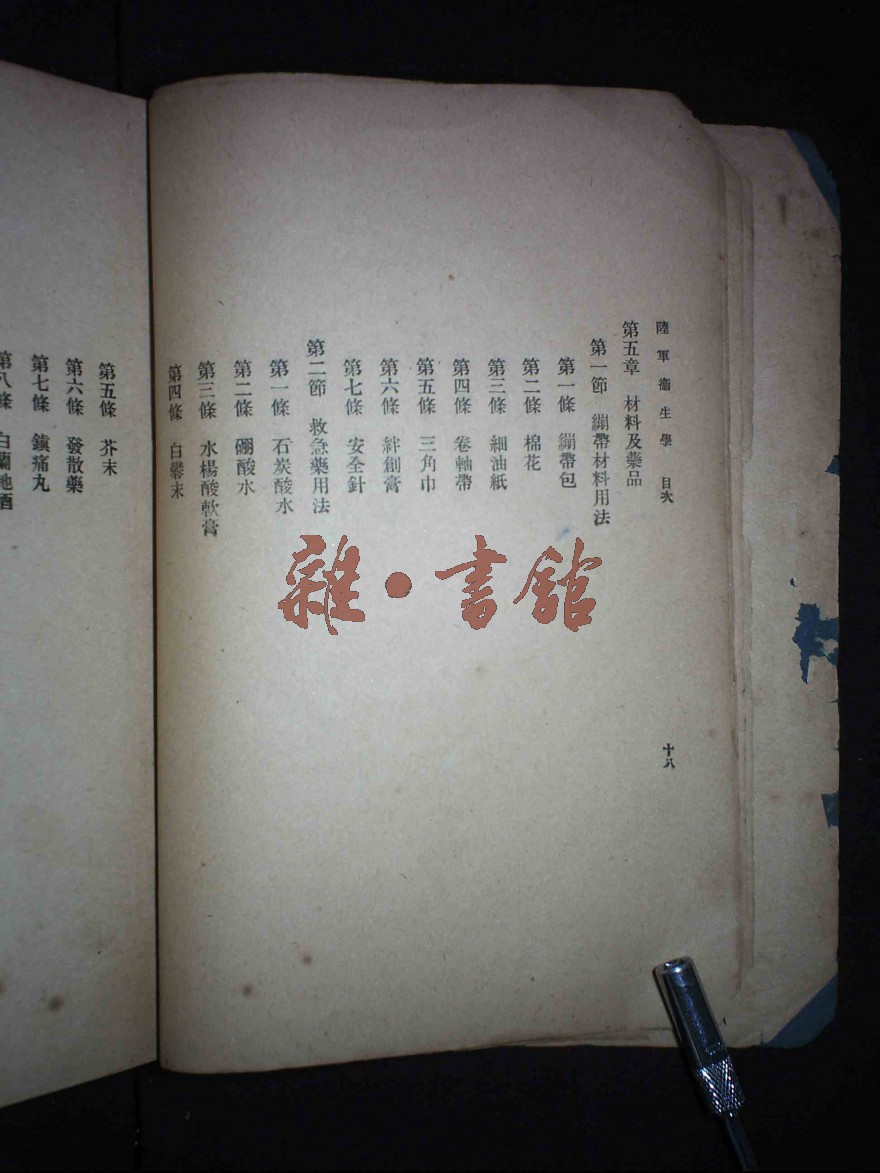 陸軍衞生學 目次
十八
第五章 材料及藥品
第一節 繃帶材料用法
第一條 繃帶包
第二條 棉花
第三條 細油紙
第四條 卷軸帶
第五條 三角巾
第六條 絆創膏
第七條 安全針
第二節 救急藥用法
第一條 石炭酸水
第二條 硼酸水
第三條 水楊酸軟膏
第四條 白礬末
第五條 芥末
第六條 發散藥
第七條 鎮痛丸
第八條 白蘭地酒
雜·書館